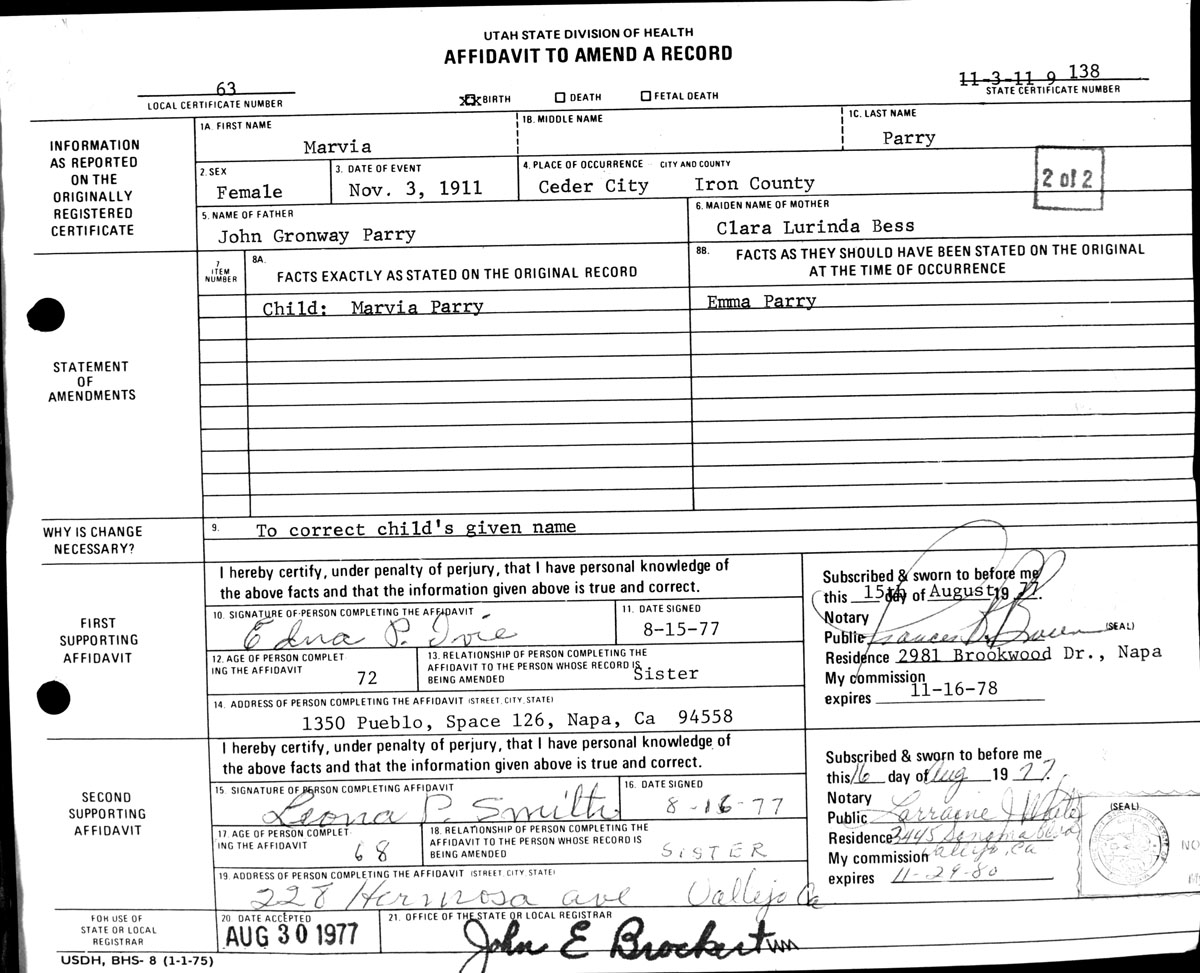 UTAH STATE DIVISION OF HEALTH
AFFIDAVIT TO AMEND A RECORD
63
LOCAL CERTIFICATE NUMBER
BIRTH
DEATH
FETAL DEATH
11-3-11 9 138
STATE CERTIFICATE NUMBER
INFORMATION
AS REPORTED
ON THE
ORIGINALLY
REGISTERED
CERTIFICATE
1A. FIRST NAME
Marvia
1B. MIDDLE NAME
1C. LAST NAME
Parry
2. SEX
Female
3. DATE OF EVENT
Nov. 3, 1911
4. PLACE OF OCCURRENCE - CITY AND COUNTY
Ceder City Iron County
2 of 2
5. NAME OF FATHER
John Gronway Parry
6. MAIDEN NAME OF MOTHER
Clara Lurinda Bess
STATEMENT
OF
AMENDMENTS
7
ITEM
NUMBER
8A.
FACTS EXACTLY AS STATED ON THE ORIGINAL RECORD
8B. FACTS AS THEY SHOULD HAVE BEEN STATED ON THE ORIGINAL
AT THE TIME OF OCCURRENCE
Child: Marvia Parry
Emma Parry
WHY IS CHANGE
NECESSARY?
9. To correct child's given name
FIRST
SUPPORTING
AFFIDAVIT
I hereby certify, under penalty of perjury, that I have personal knowledge of
the above facts and that the information given above is true and correct.
10. SIGNATURE OF PERSON COMPLETING THE AFFIDAVIT
Edna P. Ivie
11. DATE SIGNED
8-15-77
12. AGE OF PERSON COMPLET
ING THE AFFIDAVIT
72
13. RELATIONSHIP OF PERSON COMPLETING THE
AFFIDAVIT TO THE PERSON WHOSE RECORD IS
BEING AMENDED
Sister
14. ADDRESS OF PERSON COMPLETING THE AFFIDAVIT (STREET, CITY, STATE)
1350 Pueblo, Space 126, Napa, Ca 94558
Subscribed & sworn to before me
this 15th day of August 19 77.
Notary
Public Frances (SEAL)
Residence 2981 Brookwood Dr., Napa
My commission
expires 11-16-78
SECOND
SUPPORTING
AFFIDAVIT
I hereby certify, under penalty of perjury, that I have personal knowledge of
the above facts and that the information given above is true and correct.
15. SIGNATURE OF PERSON COMPLETING AFFIDAVIT
Leona P. Smith
16. DATE SIGNED
8-16-77
17. AGE OF PERSON COMPLET
ING THE AFFIDAVIT
68
18. RELATIONSHIP OF PERSON COMPLETING THE
AFFIDAVIT TO THE PERSON WHOSE RECORD IS
BEING AMENDED
SISTER
19. ADDRESS OF PERSON COMPLETING THE AFFIDAVIT (STREET, CITY, STATE)
228 Hermosa ave Vallejo Ca
Subscribed & sworn to before me
this 16 day of Aug 19 77.
Notary
Public Lorraine J White (SEAL)
Residence 3445 Sonoma Blvd
My commission Vallejo, Ca
expires 11-29-80
NO
FOR USE OF
STATE OR LOCAL
REGISTRAR
20. DATE ACCEPTED
AUG 30 1977
21. OFFICE OF THE STATE OR LOCAL REGISTRAR
John E Brockert
USDH, BHS- 8 (1-1-75)